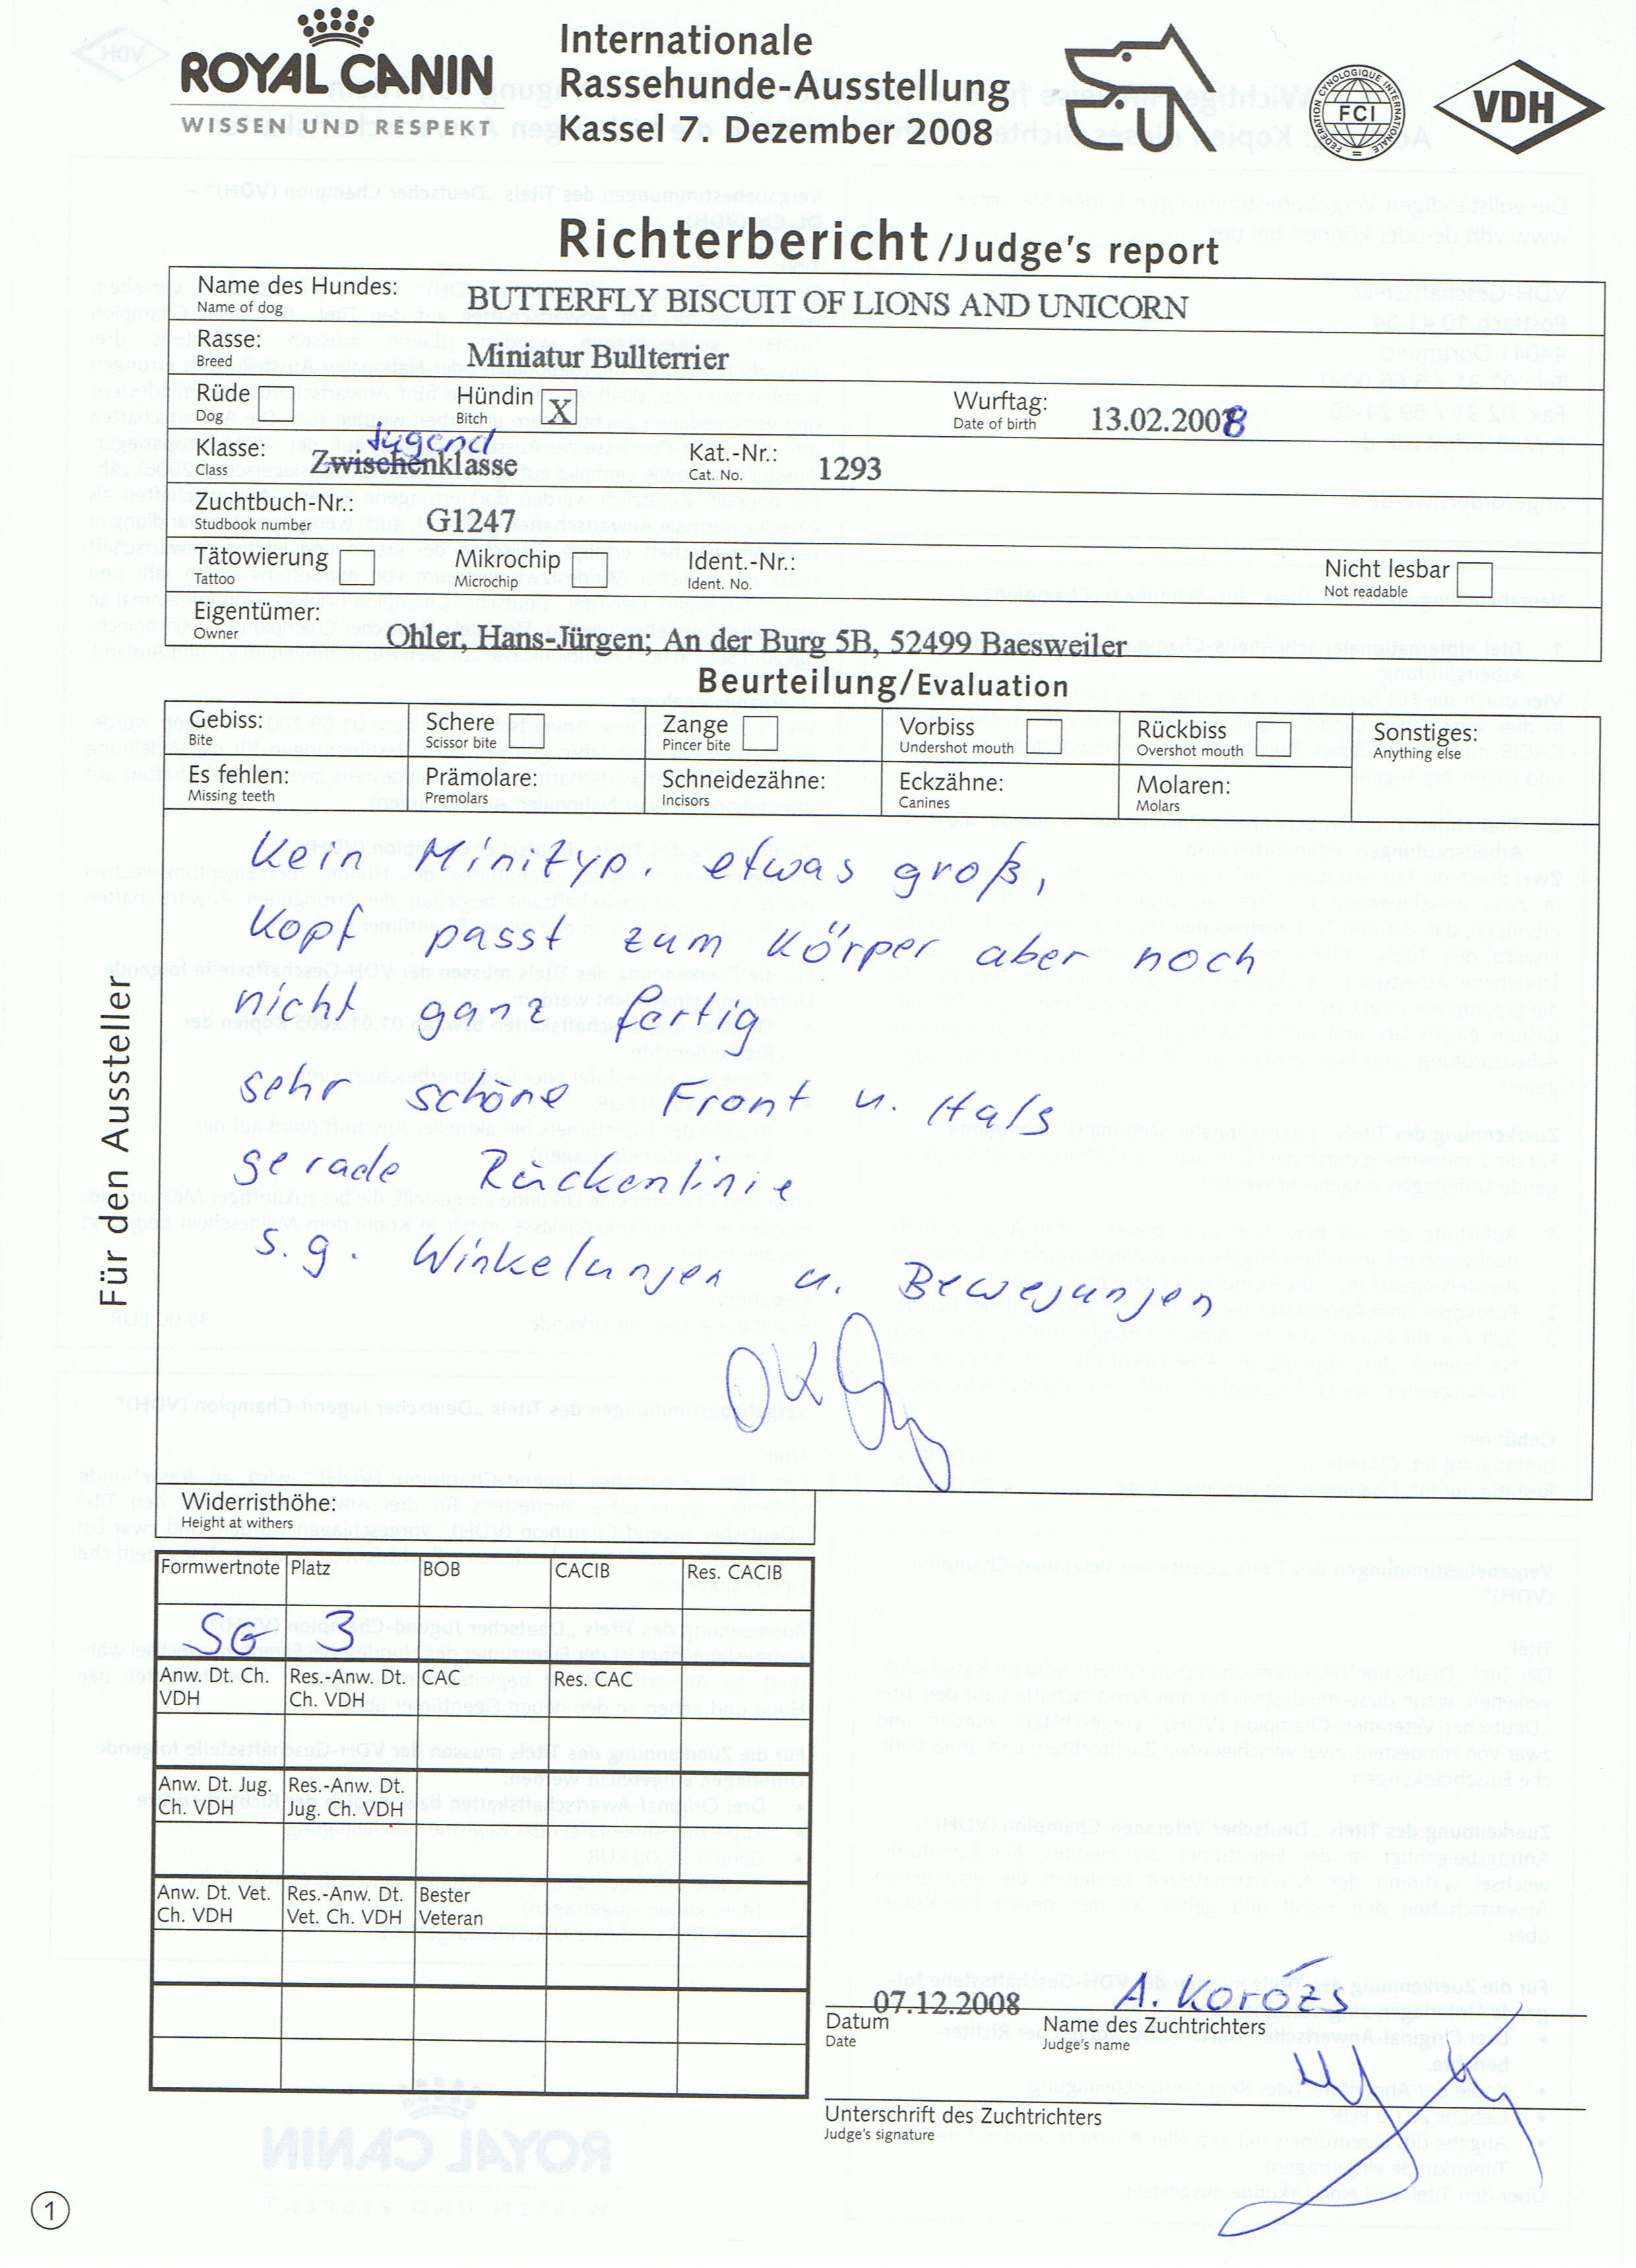 ROYAL CANIN
WISSEN UND RESPEKT
Internationale
Rassehunde-Ausstellung
Kassel 7. Dezember 2008
FEDERATION CYNOLOGIQUE INTERNATIONALE
FCI
VDH
Richterbericht /Judge's report
Name des Hundes: BUTTERFLY BISCUIT OF LIONS AND UNICORN
Name of dog
Rasse: Miniatur Bullterrier
Breed
Rüde Hündin X Wurftag: 13.02.2008
Dog Bitch Date of birth
Jugend
Klasse: Zwischenklasse Kat.-Nr.: 1293
Class Cat. No.
Zuchtbuch-Nr.: G1247
Studbook number
Tätowierung Mikrochip Ident.-Nr.: Nicht lesbar
Tattoo Microchip Ident. No. Not readable
Eigentümer: Ohler, Hans-Jürgen; An der Burg 5B, 52499 Baesweiler
Owner
Beurteilung/Evaluation
Gebiss: Schere Zange Vorbiss Rückbiss Sonstiges:
Bite Scissor bite Pincer bite Undershot mouth Overshot mouth Anything else
Es fehlen: Prämolare: Schneidezähne: Eckzähne: Molaren:
Missing teeth Premolars Incisors Canines Molars
Für den Aussteller
Kein Minityp. etwas groß,
Kopf passt zum Körper aber noch
nicht ganz fertig
sehr schöne Front u. Hals
gerade Rückenlinie
s.g. Winkelungen u. Bewegungen
Widerristhöhe:
Height at withers
Formwertnote Platz BOB CACIB Res. CACIB
SG 3
Anw. Dt. Ch. VDH Res.-Anw. Dt. Ch. VDH CAC Res. CAC
Anw. Dt. Jug. Ch. VDH Res.-Anw. Dt. Jug. Ch. VDH
Anw. Dt. Vet. Ch. VDH Res.-Anw. Dt. Vet. Ch. VDH Bester Veteran
07.12.2008 A. Korózs
Datum Name des Zuchtrichters
Date Judge's name
Unterschrift des Zuchtrichters
Judge's signature
1